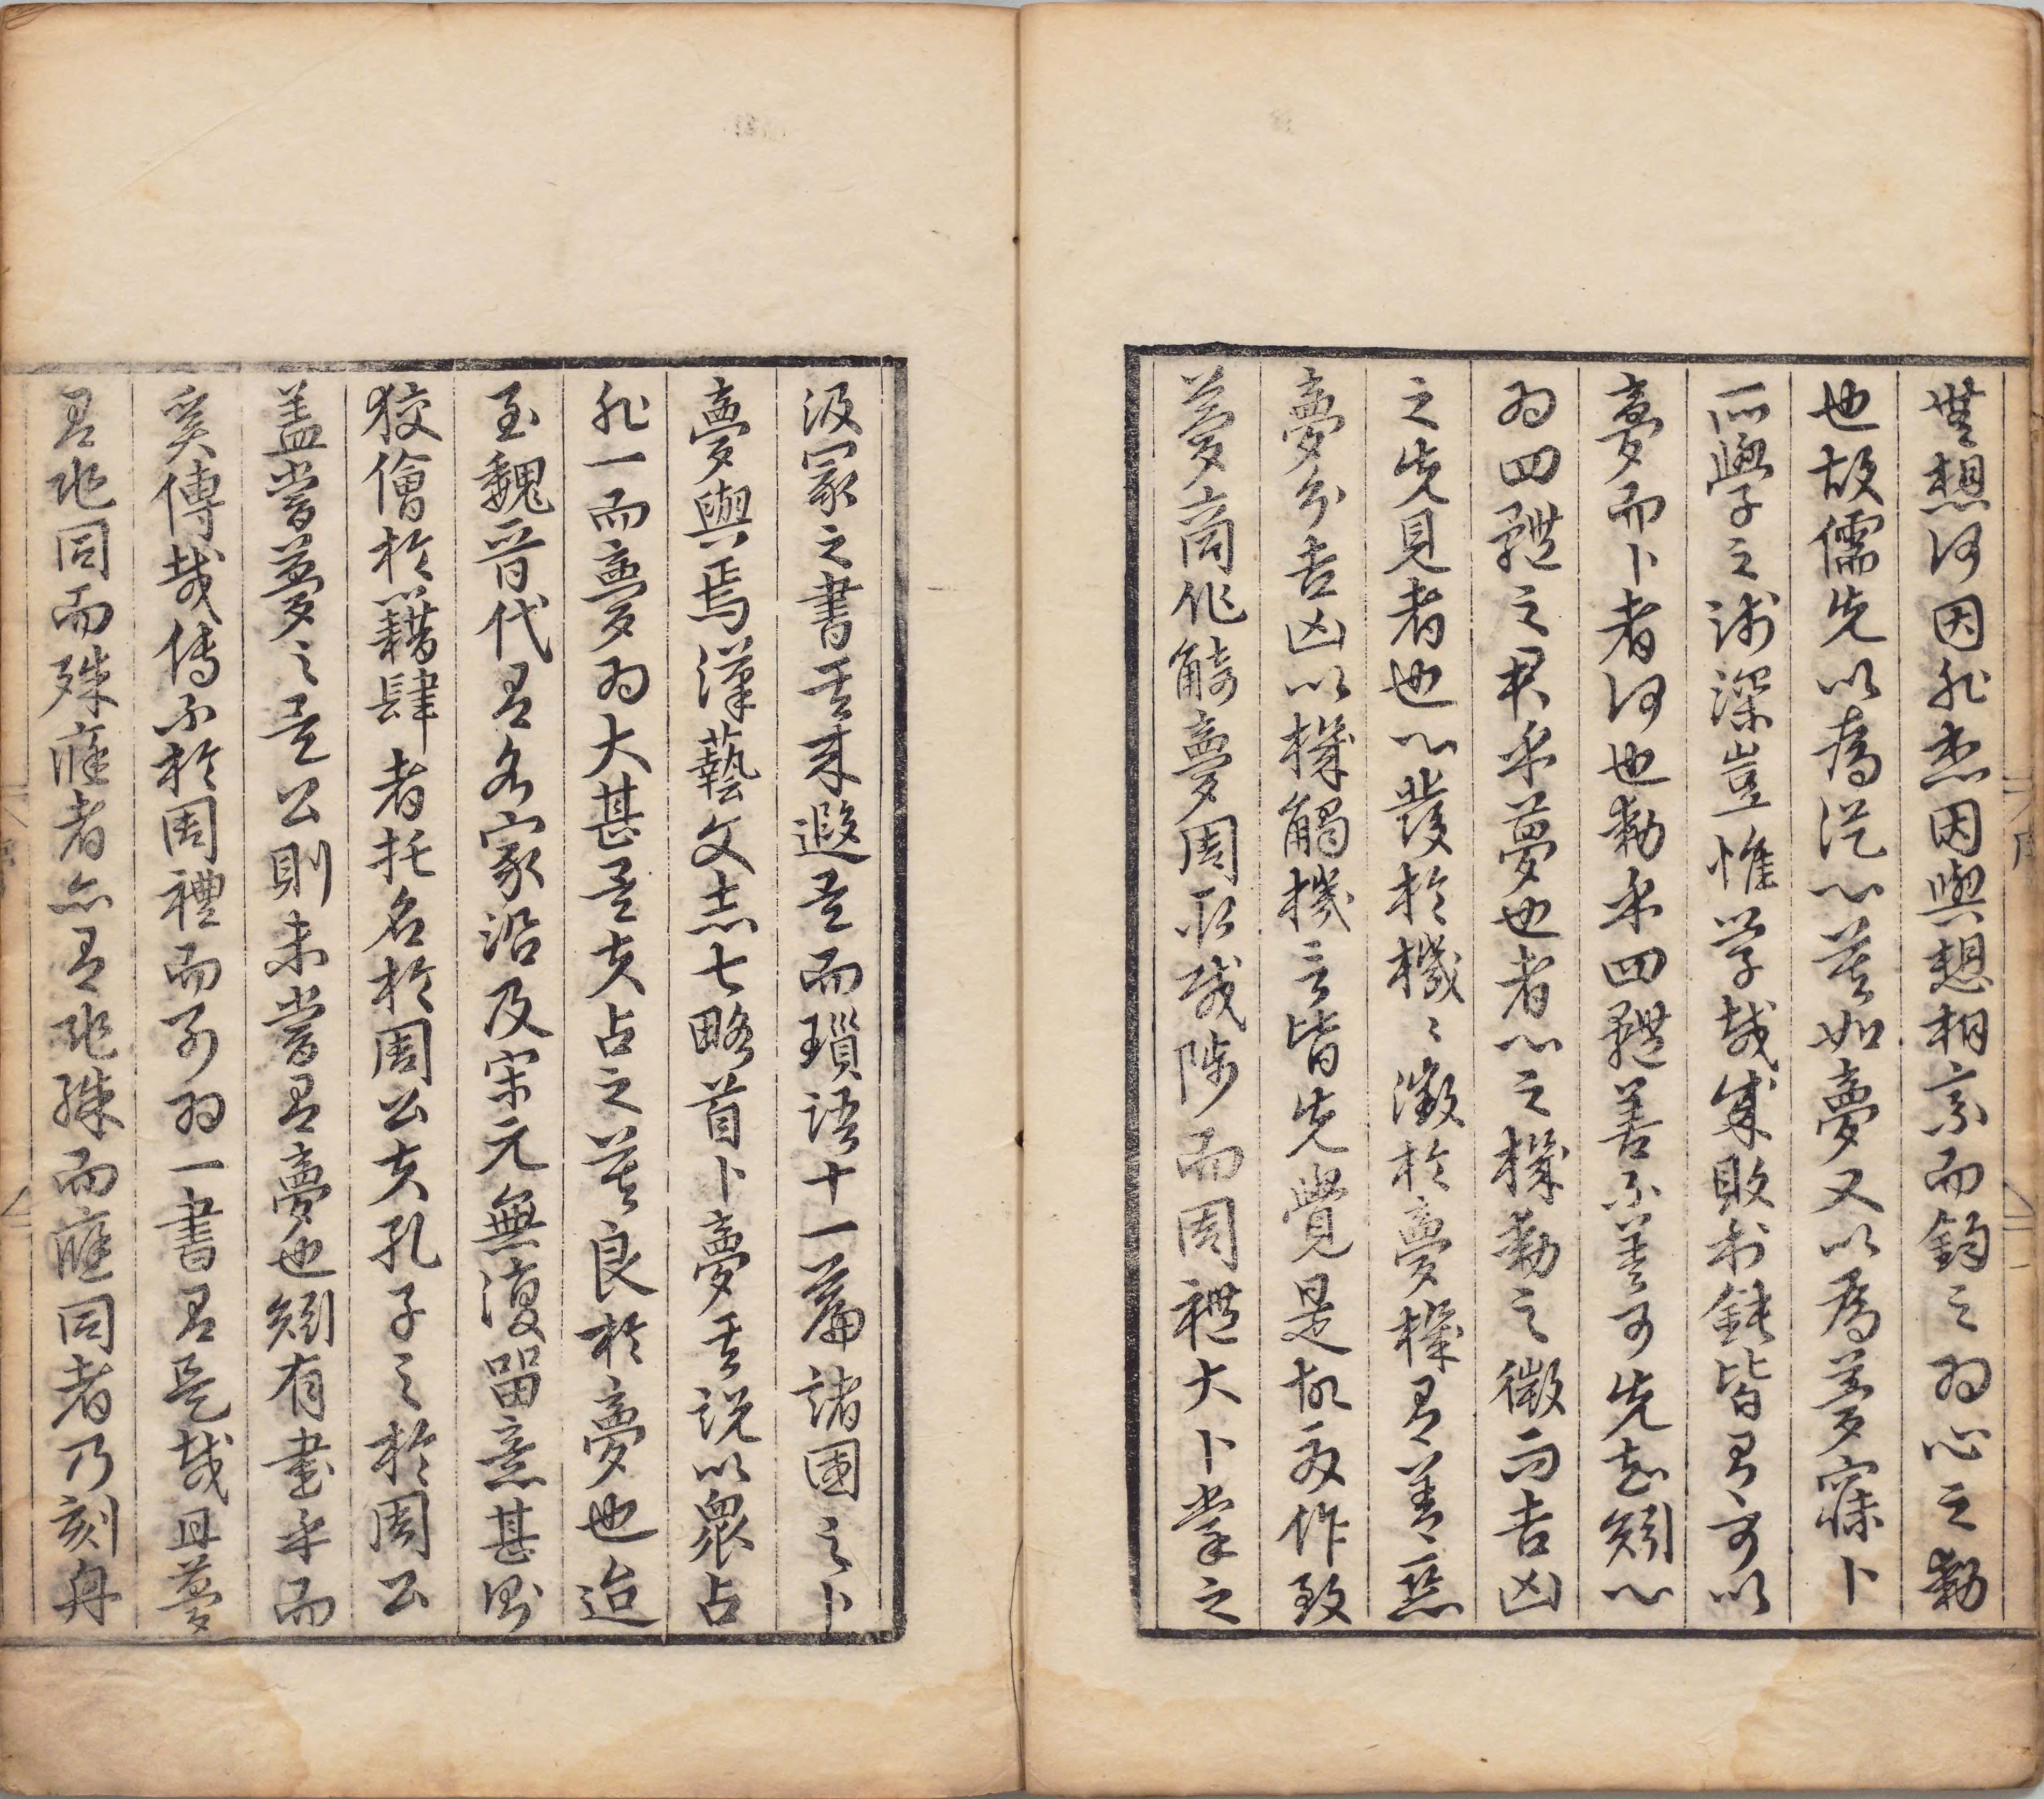 無想何因非想因與想相京而鈞之為心之動
也故儒先以為從心莫如夢又以為夢寐卜
所學之淺深豈惟學哉成敗利鈍皆有可以
夢而卜者何也動乎四體善不善可先知矧心
為四體之君乎夢也者心之機動之徵而吉凶
之先見者也心發於機機徵於夢機有善惡
夢分吉凶以機觸機言皆先覺是故夏作致
夢商作觭夢周承咸陟而周禮大卜掌之
汲冢之書其來遐矣而瑣語十一篇諸國之卜
夢與焉漢藝文志七略首卜夢其說以眾占
非一而夢為大甚矣夫占之莫良於夢也迨
至魏晉代有名家沿及宋元無復留意甚則
狡儈於藉肆者托名於周公夫孔子之於周公
蓋嘗夢之矣公則未嘗有夢也矧有書乎而
奚傳哉傳不於周禮而別為一書有是哉且夢
有兆同而殊應者亦有兆殊而應同者乃刻舟